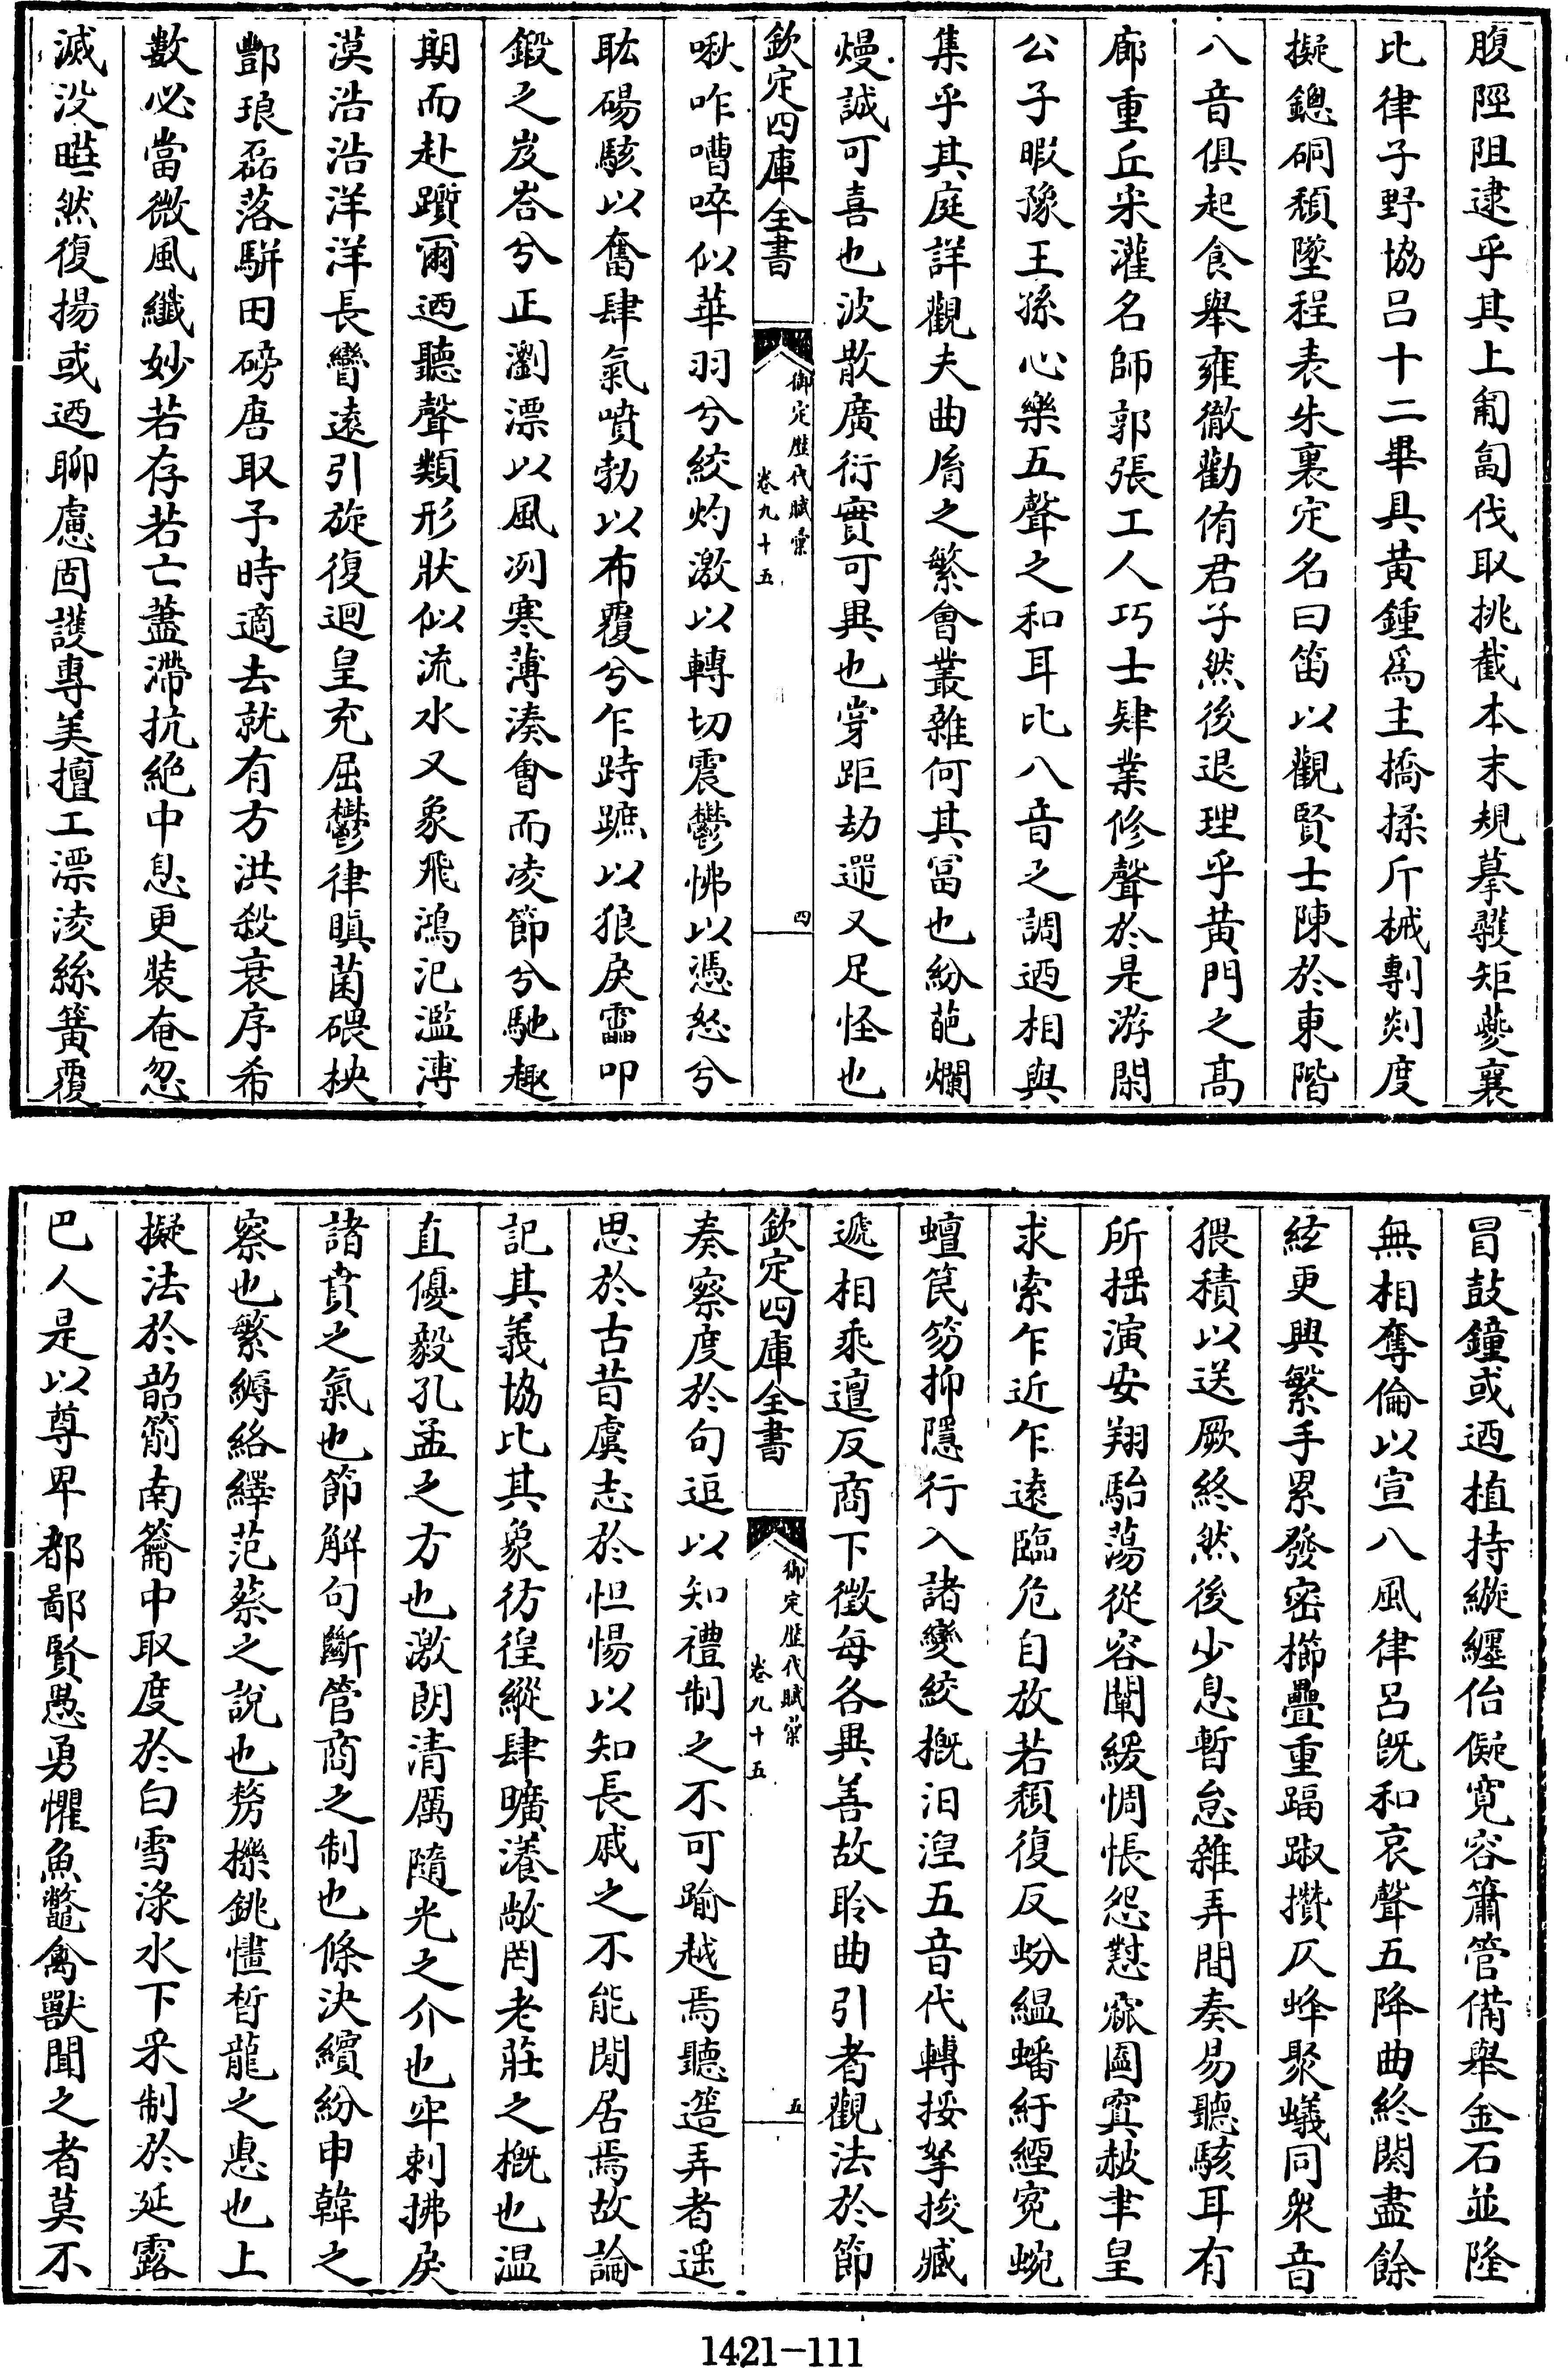 腹陘阻逮乎其上匍匐伐取挑截本末規摹彠矩夔襄
比律子野協呂十二畢具黃鍾為主撟揉斤械剸剡度
擬鏓硐頹墜程表朱裏定名曰笛以觀賢士陳於東階
八音俱起食舉雍徹勸侑君子然後退理乎黃門之高
廊重丘宋灌名師郭張工人巧士肄業修聲於是游閑
公子暇豫王孫心樂五聲之和耳比八音之調迺相與
集乎其庭詳觀夫曲胤之繁會叢雜何其富也紛葩爛
熳誠可喜也波散廣衍實可異也掌距劫遌又足怪也
欽定四庫全書
御定歷代賦彙
卷九十五
四
啾咋嘈啐似華羽兮絞灼激以轉切震鬱怫以憑怒兮
耾碭駭以奮肆氣噴勃以布覆兮乍跱蹠以狼戾靁叩
鍛之岌峇兮正瀏漂以風冽寒薄湊會而凌節兮馳趣
期而赴躓爾迺聽聲類形狀似流水又象飛鴻氾濫溥
漠浩浩洋洋長矕遠引旋復迴皇充屈鬱律瞋菌碨柍
酆琅磊落駢田磅唐取予時適去就有方洪殺衰序希
數必當微風纖妙若存若亡藎滯抗絕中息更裝奄忽
滅沒曄然復揚或迺聊慮固護專美擅工漂淩絲簧覆
冒鼓鐘或迺植持縼纆佁儗寬容簫管備舉金石並隆
無相奪倫以宣八風律呂既和哀聲五降曲終闋盡餘
絃更興繁手累發密櫛疊重踾踧攢仄蜂聚蟻同衆音
猥積以送厥終然後少息暫怠雜弄間奏易聽駭耳有
所搖演安翔駘蕩從容闡緩惆悵怨懟窳圔窴赧聿皇
求索乍近乍遠臨危自放若頹復反蚡緼蟠紆緸寃蜿
蟺笢笏抑隱行入諸變絞概汨湟五音代轉挼拏捘臧
遞相乘邅反商下徵每各異善故聆曲引者觀法於節
欽定四庫全書
御定歷代賦彙
卷九十五
五
奏察度於句逗以知禮制之不可踰越焉聽簉弄者遥
思於古昔虞志於怛惕以知長戚之不能閒居焉故論
記其義協比其象彷徨縱肆曠瀁敞罔老莊之概也温
直優毅孔孟之方也激朗清厲隨光之介也牢剌拂戾
諸賁之氣也節解句斷管商之制也條決繽紛申韓之
察也繁縟絡繹范蔡之說也剺櫟銚㦎皙龍之惠也上
擬法於韶箾南籥中取度於白雪淥水下采制於延露
巴人是以尊卑都鄙賢愚勇懼魚鼈禽獸聞之者莫不
1421-111